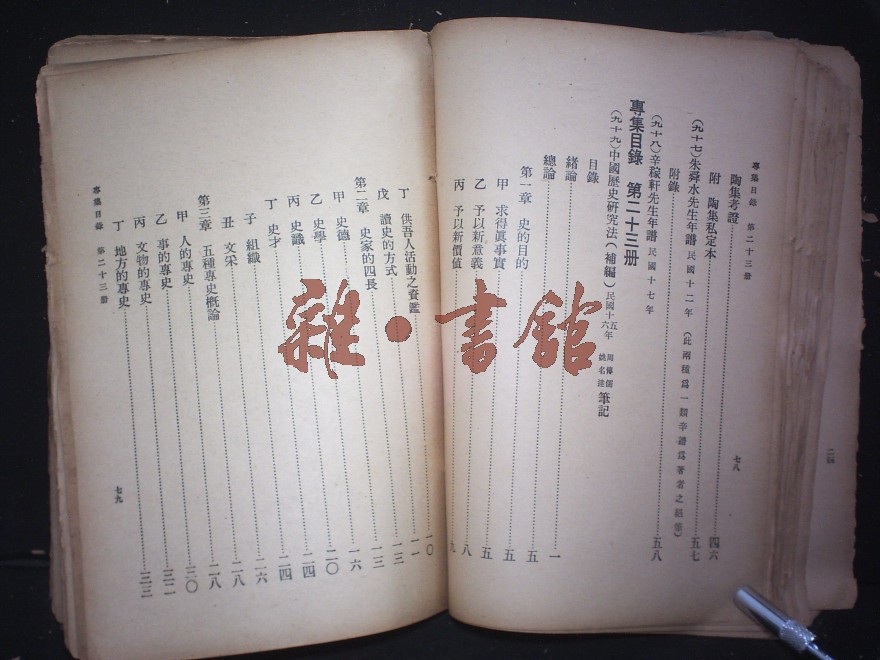 專集目錄 第二十三册
七八
陶集考證
附 陶集私定本 四六
(九十七)朱舜水先生年譜 民國十二年 五七
附錄
(九十八)辛稼軒先生年譜 民國十七年 五八
專集目錄 第二十三册
(九十九)中國歷史研究法(補編) 民國十五六年 周傳儒 姚名達 筆記
目錄
緒論 一
總論 五
第一章 史的目的 五
甲 求得眞事實 五
乙 予以新意義 八
丙 予以新價值 九
丁 供吾人活動之資鑑 一〇
戊 讀史的方式 一一
第二章 史家的四長 一三
甲 史德 一三
乙 史學 一六
丙 史識 二〇
丁 史才 二四
子 組織 二四
丑 文采 二六
第三章 五種專史概論 二八
甲 人的專史 二八
乙 事的專史 三〇
丙 文物的專史 三二
丁 地方的專史 三三
專集目錄 第二十三册
七九
雜·書館